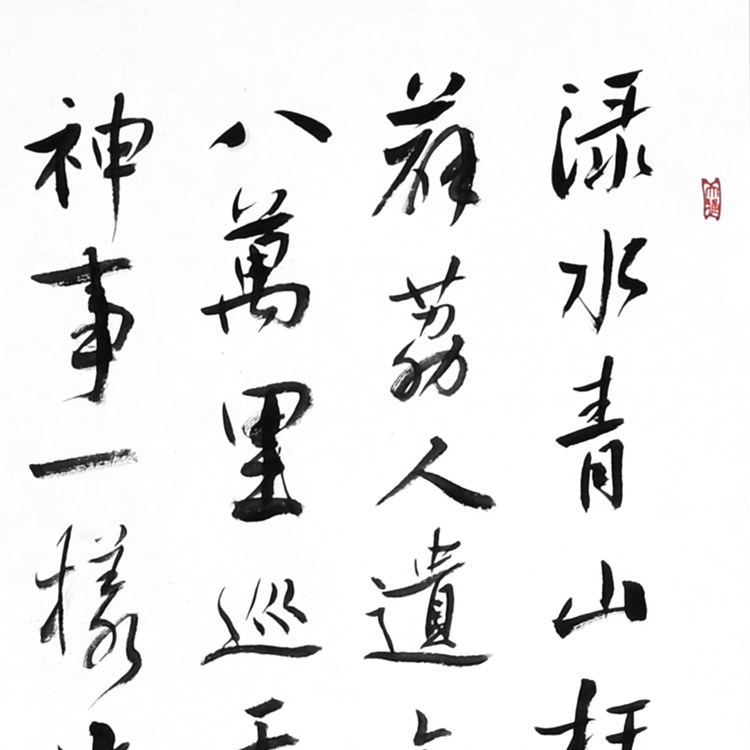 渌水青山枉
薜荔人遺
八萬里巡
神事一樣